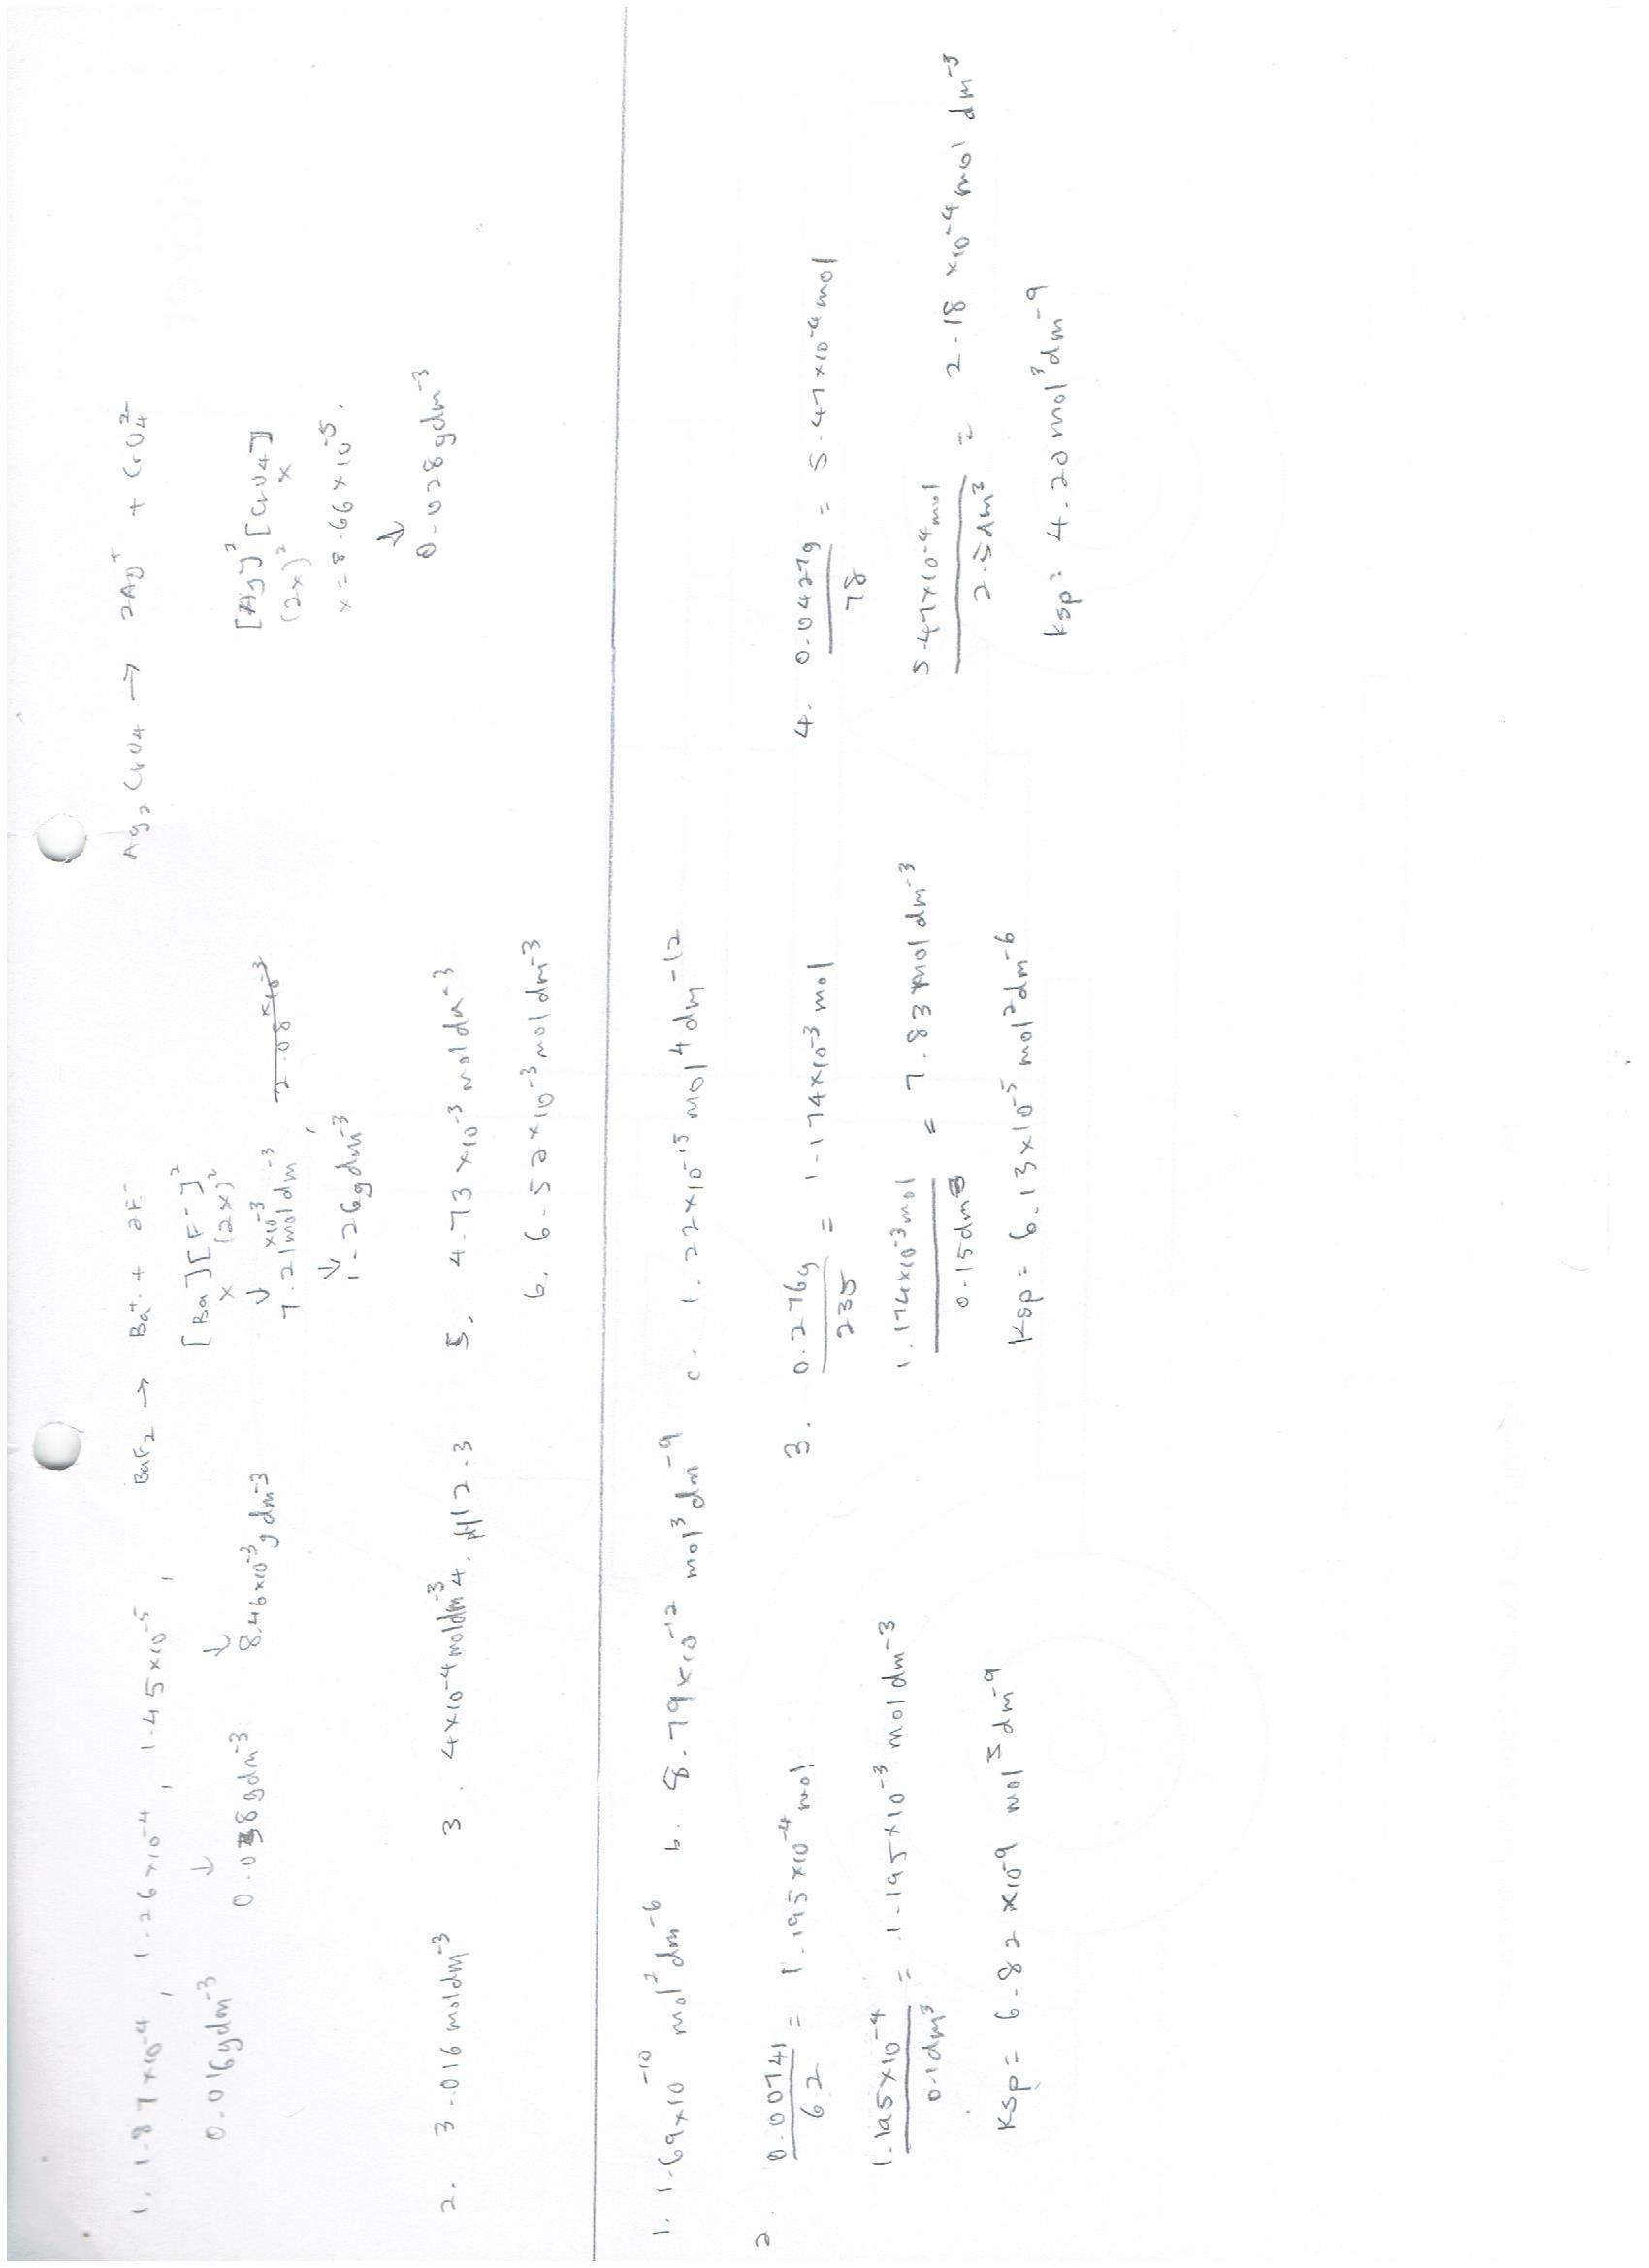 1. 1.87 ×10⁻⁴, 1.26 ×10⁻⁴, 1.45 ×10⁻⁵,
0.016gdm⁻³
↓
0.038gdm⁻³
↓
8.46×10⁻³g dm⁻³
BaF₂ → Ba⁺. + 2F.⁻
[Ba][F⁻]²
x (2x)²
↓
7.21×10⁻³moldm⁻³, 2.08×10⁻³
↓
1.26gdm⁻³
Ag₂CrO4 → 2Ag⁺ + CrO₄²⁻
[Ag]²[CrO4]
(2x)² x
x = 8.66 × 10⁻⁵.
↓
0.028gdm⁻³
2. 3.016 moldm⁻³ 3. 4×10⁻⁴moldm⁻³ 4. pH12.3 5. 4.73 ×10⁻³ moldm⁻³
6. 6.52×10⁻³moldm⁻³
1. 1.69×10⁻¹⁰ mol²dm⁻⁶ b. 8.79×10⁻¹² mol³dm⁻⁹ c. 1.22×10⁻¹⁵ mol⁴dm⁻¹²
2. 0.00741/62 = 1.195×10⁻⁴mol
1.195×10⁻⁴/0.1dm³ = 1.195×10⁻³ moldm⁻³
Ksp = 6.82 ×10⁻⁹ mol³dm⁻⁹
3. 0.276g/235 = 1.174×10⁻³ mol
1.174×10⁻³mol/0.15dm³ = 7.83 moldm⁻³
Ksp = 6.13×10⁻⁵ mol²dm⁻⁶
4. 0.0427g/78 = 5.47×10⁻⁴mol
5.47×10⁻⁴mol/2.5dm³ = 2.18 ×10⁻⁴mol dm⁻³
Ksp = 4.20mol³dm⁻⁹